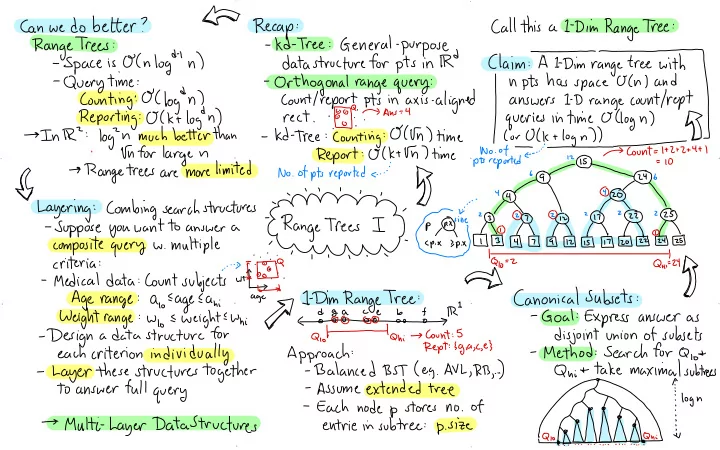 Recap:
- kd-Tree: General-purpose
data structure for pts in ℝᵈ
- Orthogonal range query:
Count/report pts in axis-aligned
rect.
Q
→ Ans = 4
- kd-Tree: Counting: O(√n) time
Report: O(k+√n) time
No. of pts reported
Can we do better?
Range Trees:
- Space is O(n logᵈ⁻¹ n)
- Query time:
Counting: O(logᵈ n)
Reporting: O(k+logᵈ n)
→ In ℝ²: log²n much better than
√n for large n
→ Range trees are more limited
Layering: Combing search structures
- Suppose you want to answer a
composite query w. multiple
criteria:
- Medical data: Count subjects
Age range: a_lo ≤ age ≤ a_hi
Weight range: w_lo ≤ weight ≤ w_hi
- Design a data structure for
each criterion individually
- Layer these structures together
to answer full query
→ Multi-Layer Data Structures
Q
wt
age
Range Trees I
1-Dim Range Tree:
d g a c e b f ℝ¹
Q_lo Q_hi
→ Count: 5
Rept: {g,a,c,e}
Approach:
- Balanced BST (eg. AVL, RB,..)
- Assume extended tree
- Each node p stores no. of
entrie in subtree: p.size
Call this a 1-Dim Range Tree:
Claim: A 1-Dim range tree with
n pts has space O(n) and
answers 1-D range count/rept
queries in time O(log n)
(or O(k + log n))
No. of
pts reported
→ Count = 1+2+2+4+1
= 10
p
p.x
size
<p.x ≥p.x
12 15
6 9 24 6
4 4 4 20
2 3 2 7 2 12 2 17 2 22 2 25
1 3 4 7 9 12 15 17 20 22 24 25
1 1
Q_lo=2 Q_hi=24
Canonical Subsets:
- Goal: Express answer as
disjoint union of subsets
- Method: Search for Q_lo +
Q_hi + take maximal subtrees
log n
Q_lo Q_hi